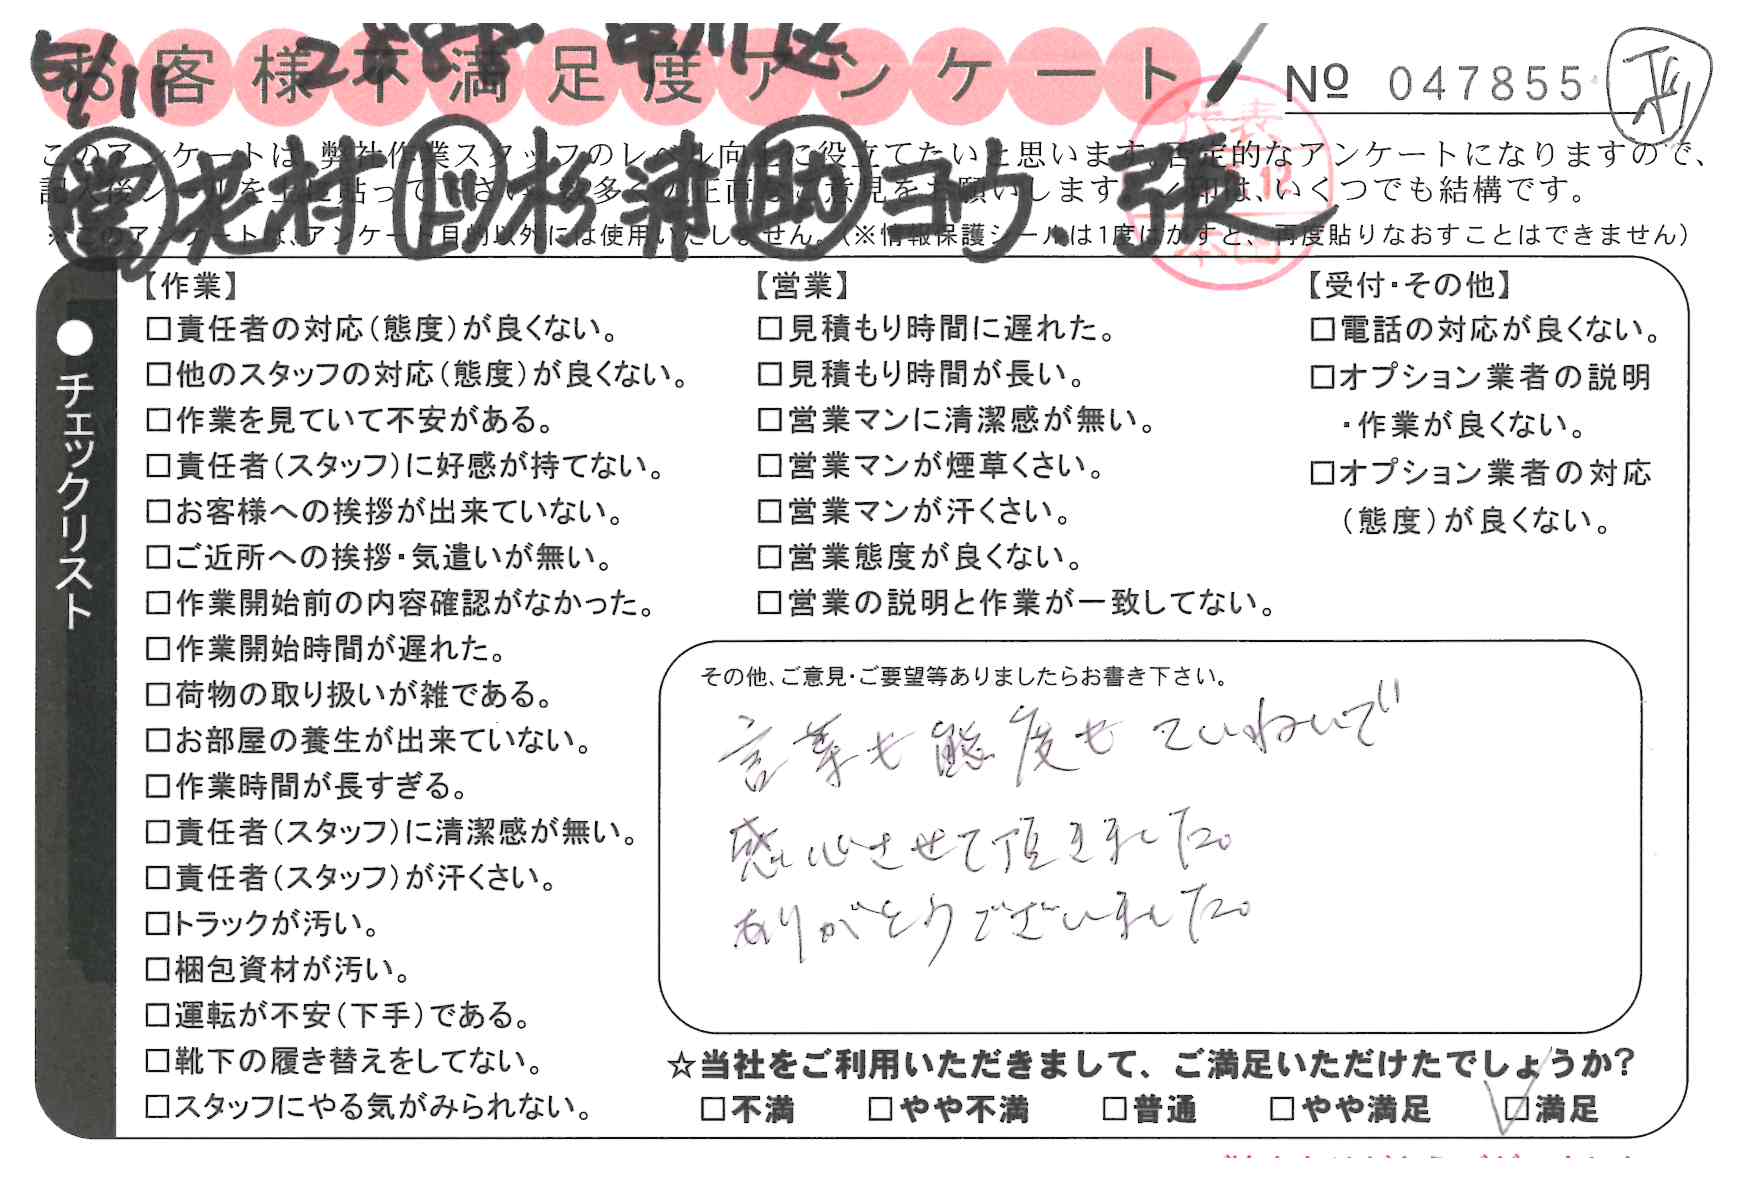 お客様不満足度アンケート
№ 047855
このアンケートは、弊社作業スタッフのレベル向上に役立てたいと思います。否定的なアンケートになりますので、
記入後シールを上に貼って下さい。数多くの正直なご意見をお願いします。✓印は、いくつでも結構です。
※このアンケートは、アンケート目的以外には使用いたしません。(※情報保護シールは1度はがすと、再度貼りなおすことはできません)
杉浦 助 ヨウ 張
●チェックリスト
【作業】
□責任者の対応(態度)が良くない。
□他のスタッフの対応(態度)が良くない。
□作業を見ていて不安がある。
□責任者(スタッフ)に好感が持てない。
□お客様への挨拶が出来ていない。
□ご近所への挨拶・気遣いが無い。
□作業開始前の内容確認がなかった。
□作業開始時間が遅れた。
□荷物の取り扱いが雑である。
□お部屋の養生が出来ていない。
□作業時間が長すぎる。
□責任者(スタッフ)に清潔感が無い。
□責任者(スタッフ)が汗くさい。
□トラックが汚い。
□梱包資材が汚い。
□運転が不安(下手)である。
□靴下の履き替えをしてない。
□スタッフにやる気がみられない。
【営業】
□見積もり時間に遅れた。
□見積もり時間が長い。
□営業マンに清潔感が無い。
□営業マンが煙草くさい。
□営業マンが汗くさい。
□営業態度が良くない。
□営業の説明と作業が一致してない。
【受付・その他】
□電話の対応が良くない。
□オプション業者の説明
・作業が良くない。
□オプション業者の対応
(態度)が良くない。
その他、ご意見・ご要望等ありましたらお書き下さい。
言葉も態度もていねいで
感心させて頂きました。
ありがとうございました。
☆当社をご利用いただきまして、ご満足いただけたでしょうか?
□不満 □やや不満 □普通 □やや満足 ☑満足